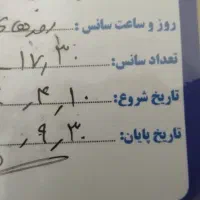 روز و ساعت سانس : روزهای
تعداد سانس: ۱۷,۳۰
تاریخ شروع: ۴,۱۰
تاریخ پایان: ۹,۳۰